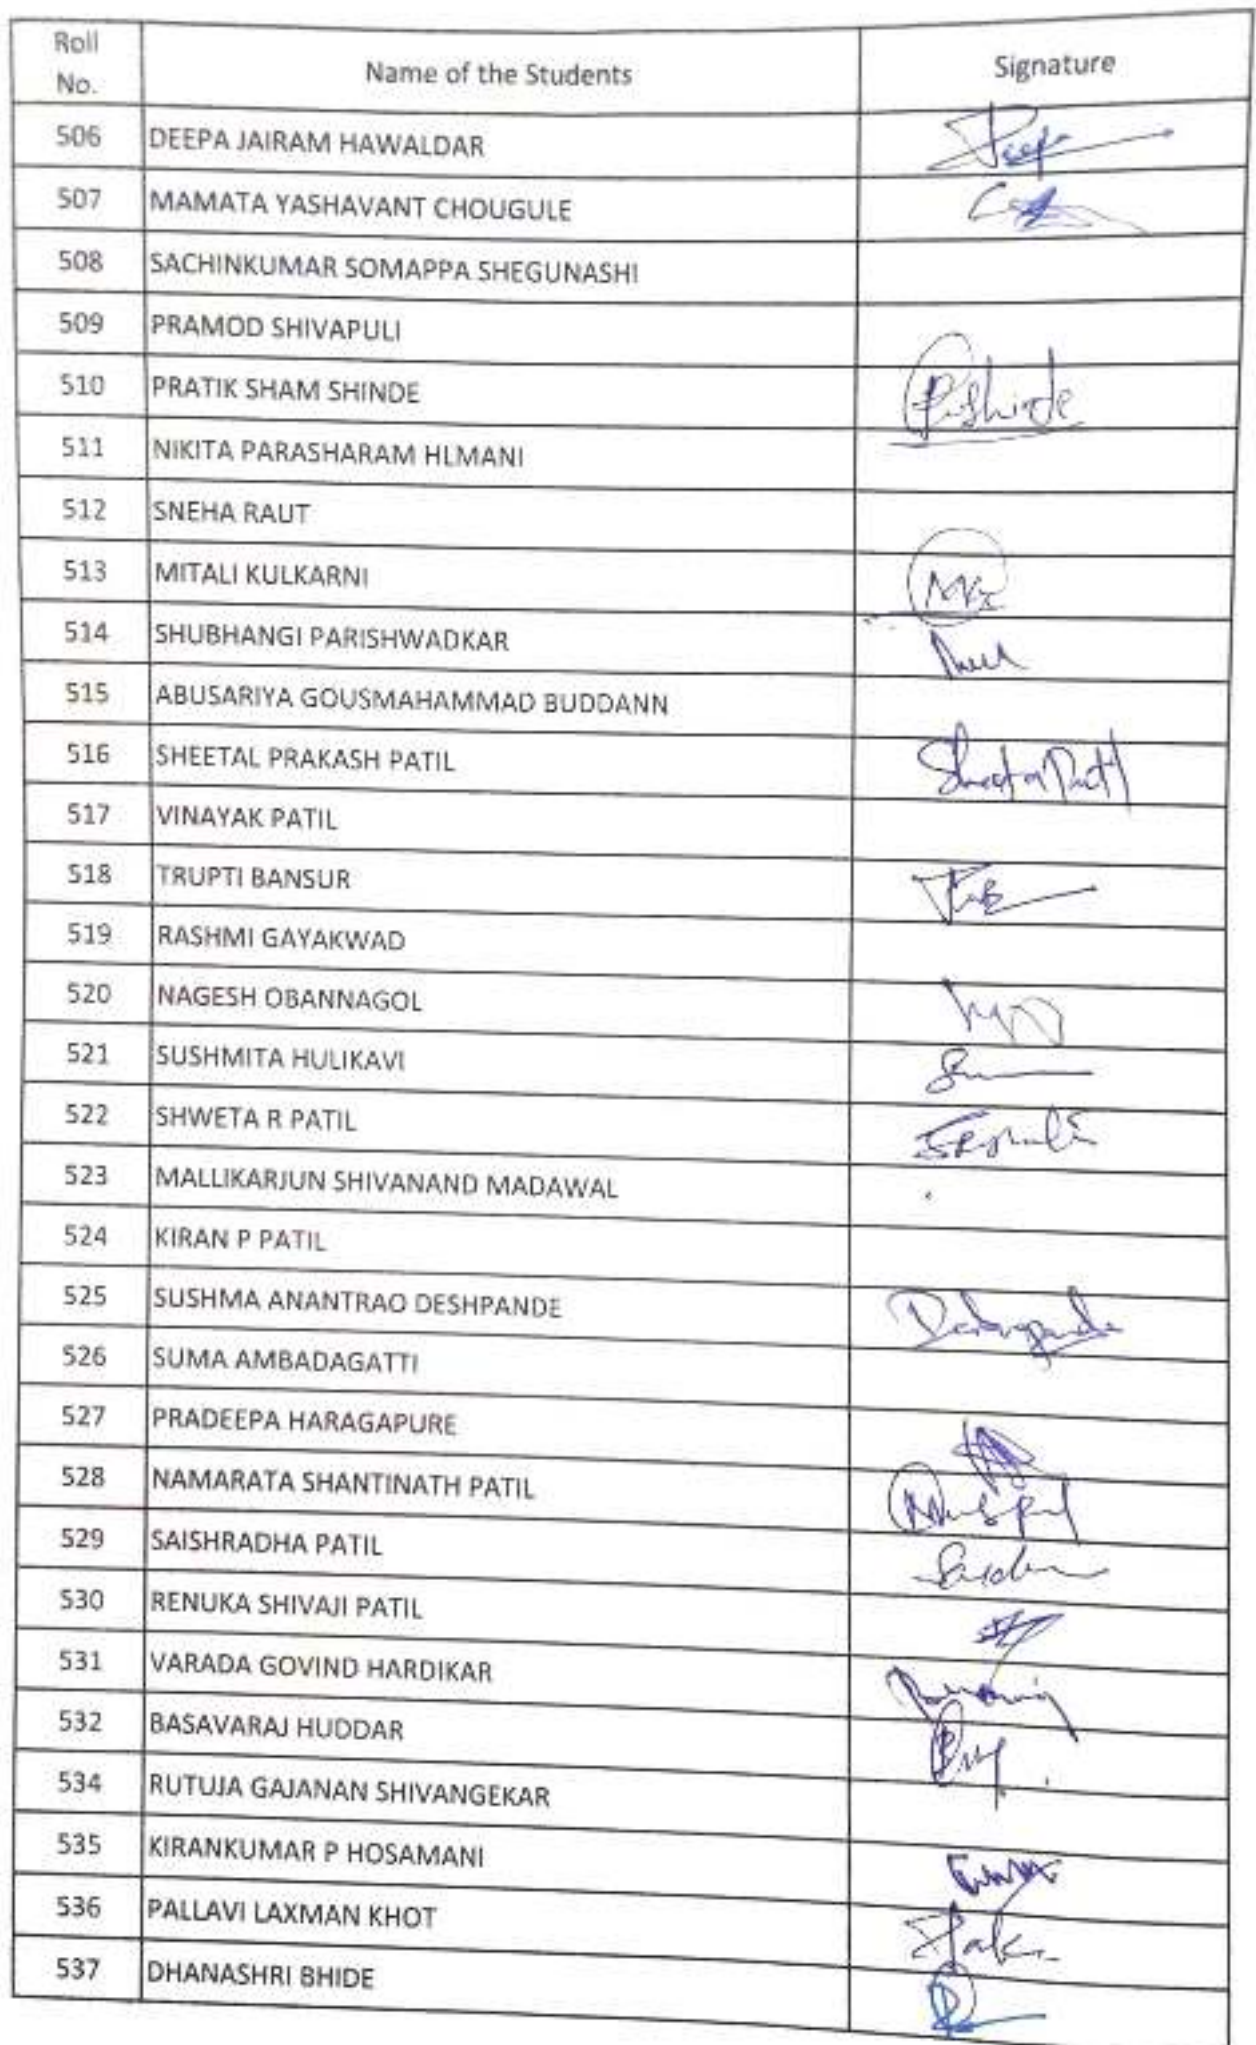 Roll No. Name of the Students Signature
506 DEEPA JAIRAM HAWALDAR Deepa
507 MAMATA YASHAVANT CHOUGULE
508 SACHINKUMAR SOMAPPA SHEGUNASHI
509 PRAMOD SHIVAPULI
510 PRATIK SHAM SHINDE P.Shinde
511 NIKITA PARASHARAM HLMANI
512 SNEHA RAUT
513 MITALI KULKARNI
514 SHUBHANGI PARISHWADKAR
515 ABUSARIYA GOUSMAHAMMAD BUDDANN
516 SHEETAL PRAKASH PATIL
517 VINAYAK PATIL
518 TRUPTI BANSUR
519 RASHMI GAYAKWAD
520 NAGESH OBANNAGOL
521 SUSHMITA HULIKAVI
522 SHWETA R PATIL
523 MALLIKARJUN SHIVANAND MADAWAL
524 KIRAN P PATIL
525 SUSHMA ANANTRAO DESHPANDE
526 SUMA AMBADAGATTI
527 PRADEEPA HARAGAPURE
528 NAMARATA SHANTINATH PATIL
529 SAISHRADHA PATIL
530 RENUKA SHIVAJI PATIL
531 VARADA GOVIND HARDIKAR
532 BASAVARAJ HUDDAR
534 RUTUJA GAJANAN SHIVANGEKAR
535 KIRANKUMAR P HOSAMANI
536 PALLAVI LAXMAN KHOT
537 DHANASHRI BHIDE